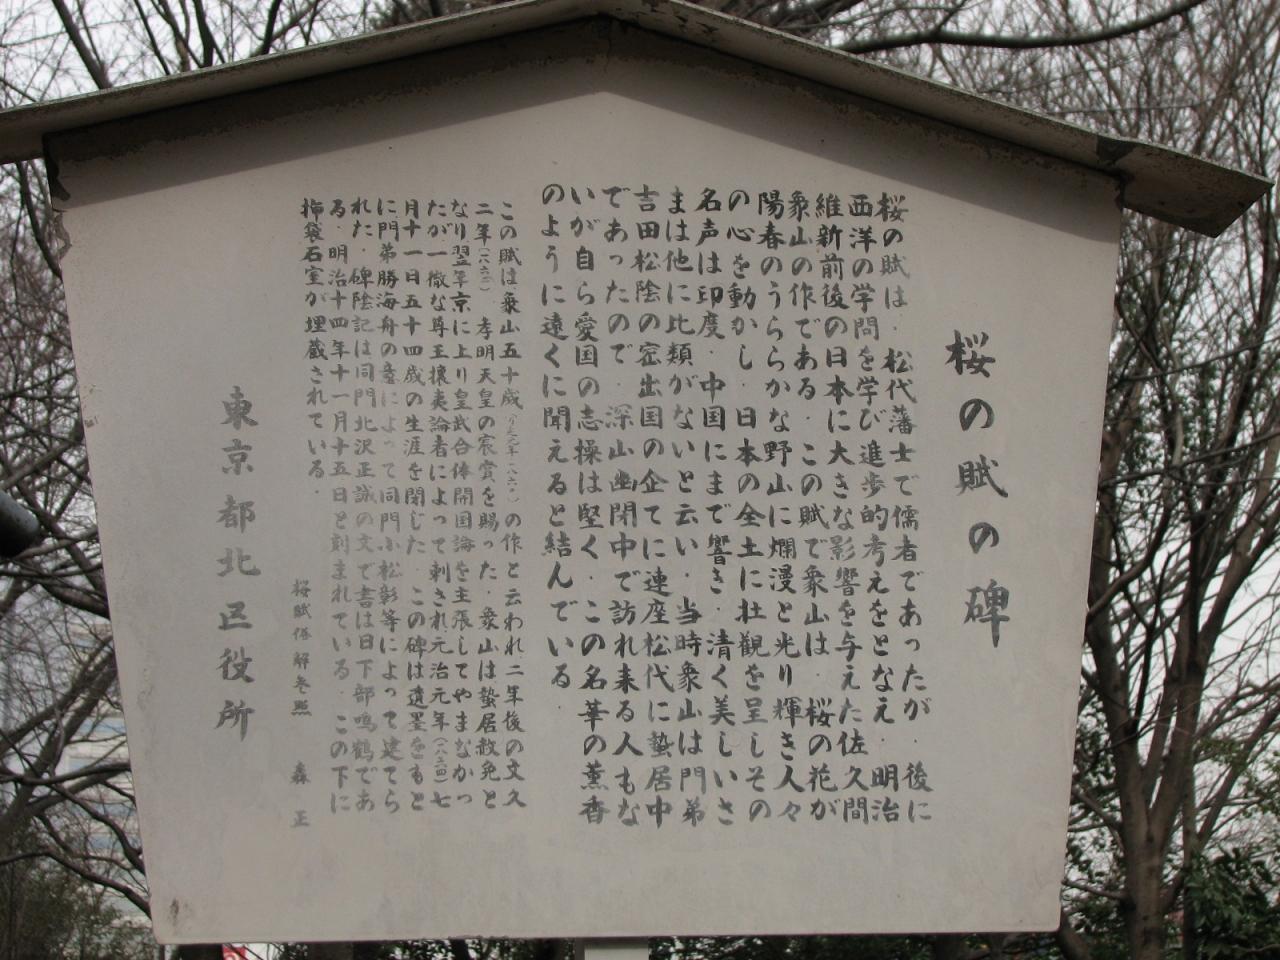 桜の賦の碑
桜の賦は、松代藩士で儒者であったが、後に
西洋の学問を学び進歩的考えをとなえ、明治
維新前後の日本に大きな影響を与えた佐久間
象山の作である。この賦で象山は、桜の花が
陽春のうららかな野山に爛漫と光り輝き人々
の心を動かし、日本の全土に壮観を呈しその
名声は印度、中国にまで響き、清く美しいさ
まは他に比類がないと云い、当時象山は門弟
吉田松陰の密出国の企てに連座松代に蟄居中
であったので、深山幽閉中で訪れ来る人もな
いが自ら愛国の志操は堅く、この名華の薫香
のように遠くに聞えると結んでいる
この賦は象山五十歳(万延元年一八六〇)の作と云われ、二年後の文久
二年(一八六二)孝明天皇の宸賞を賜った。象山は蟄居赦免と
なり翌年京に上り皇武合体開国論を主張してやまなかっ
たが一徹な尊王攘夷論者によって刺され元治元年(一八六四)七
月十一日五十四歳の生涯を閉じた。この碑は遺墨をもと
に門弟勝海舟の意によって同門小松彰等によって建てら
れた。碑陰記は同門北沢正誠の文で書は日下部鳴鶴であ
る。明治十四年十一月十五日と刻まれている。この下に
挿袋石室が埋蔵されている。
桜賦俗解参照 森 正
東京都北区役所